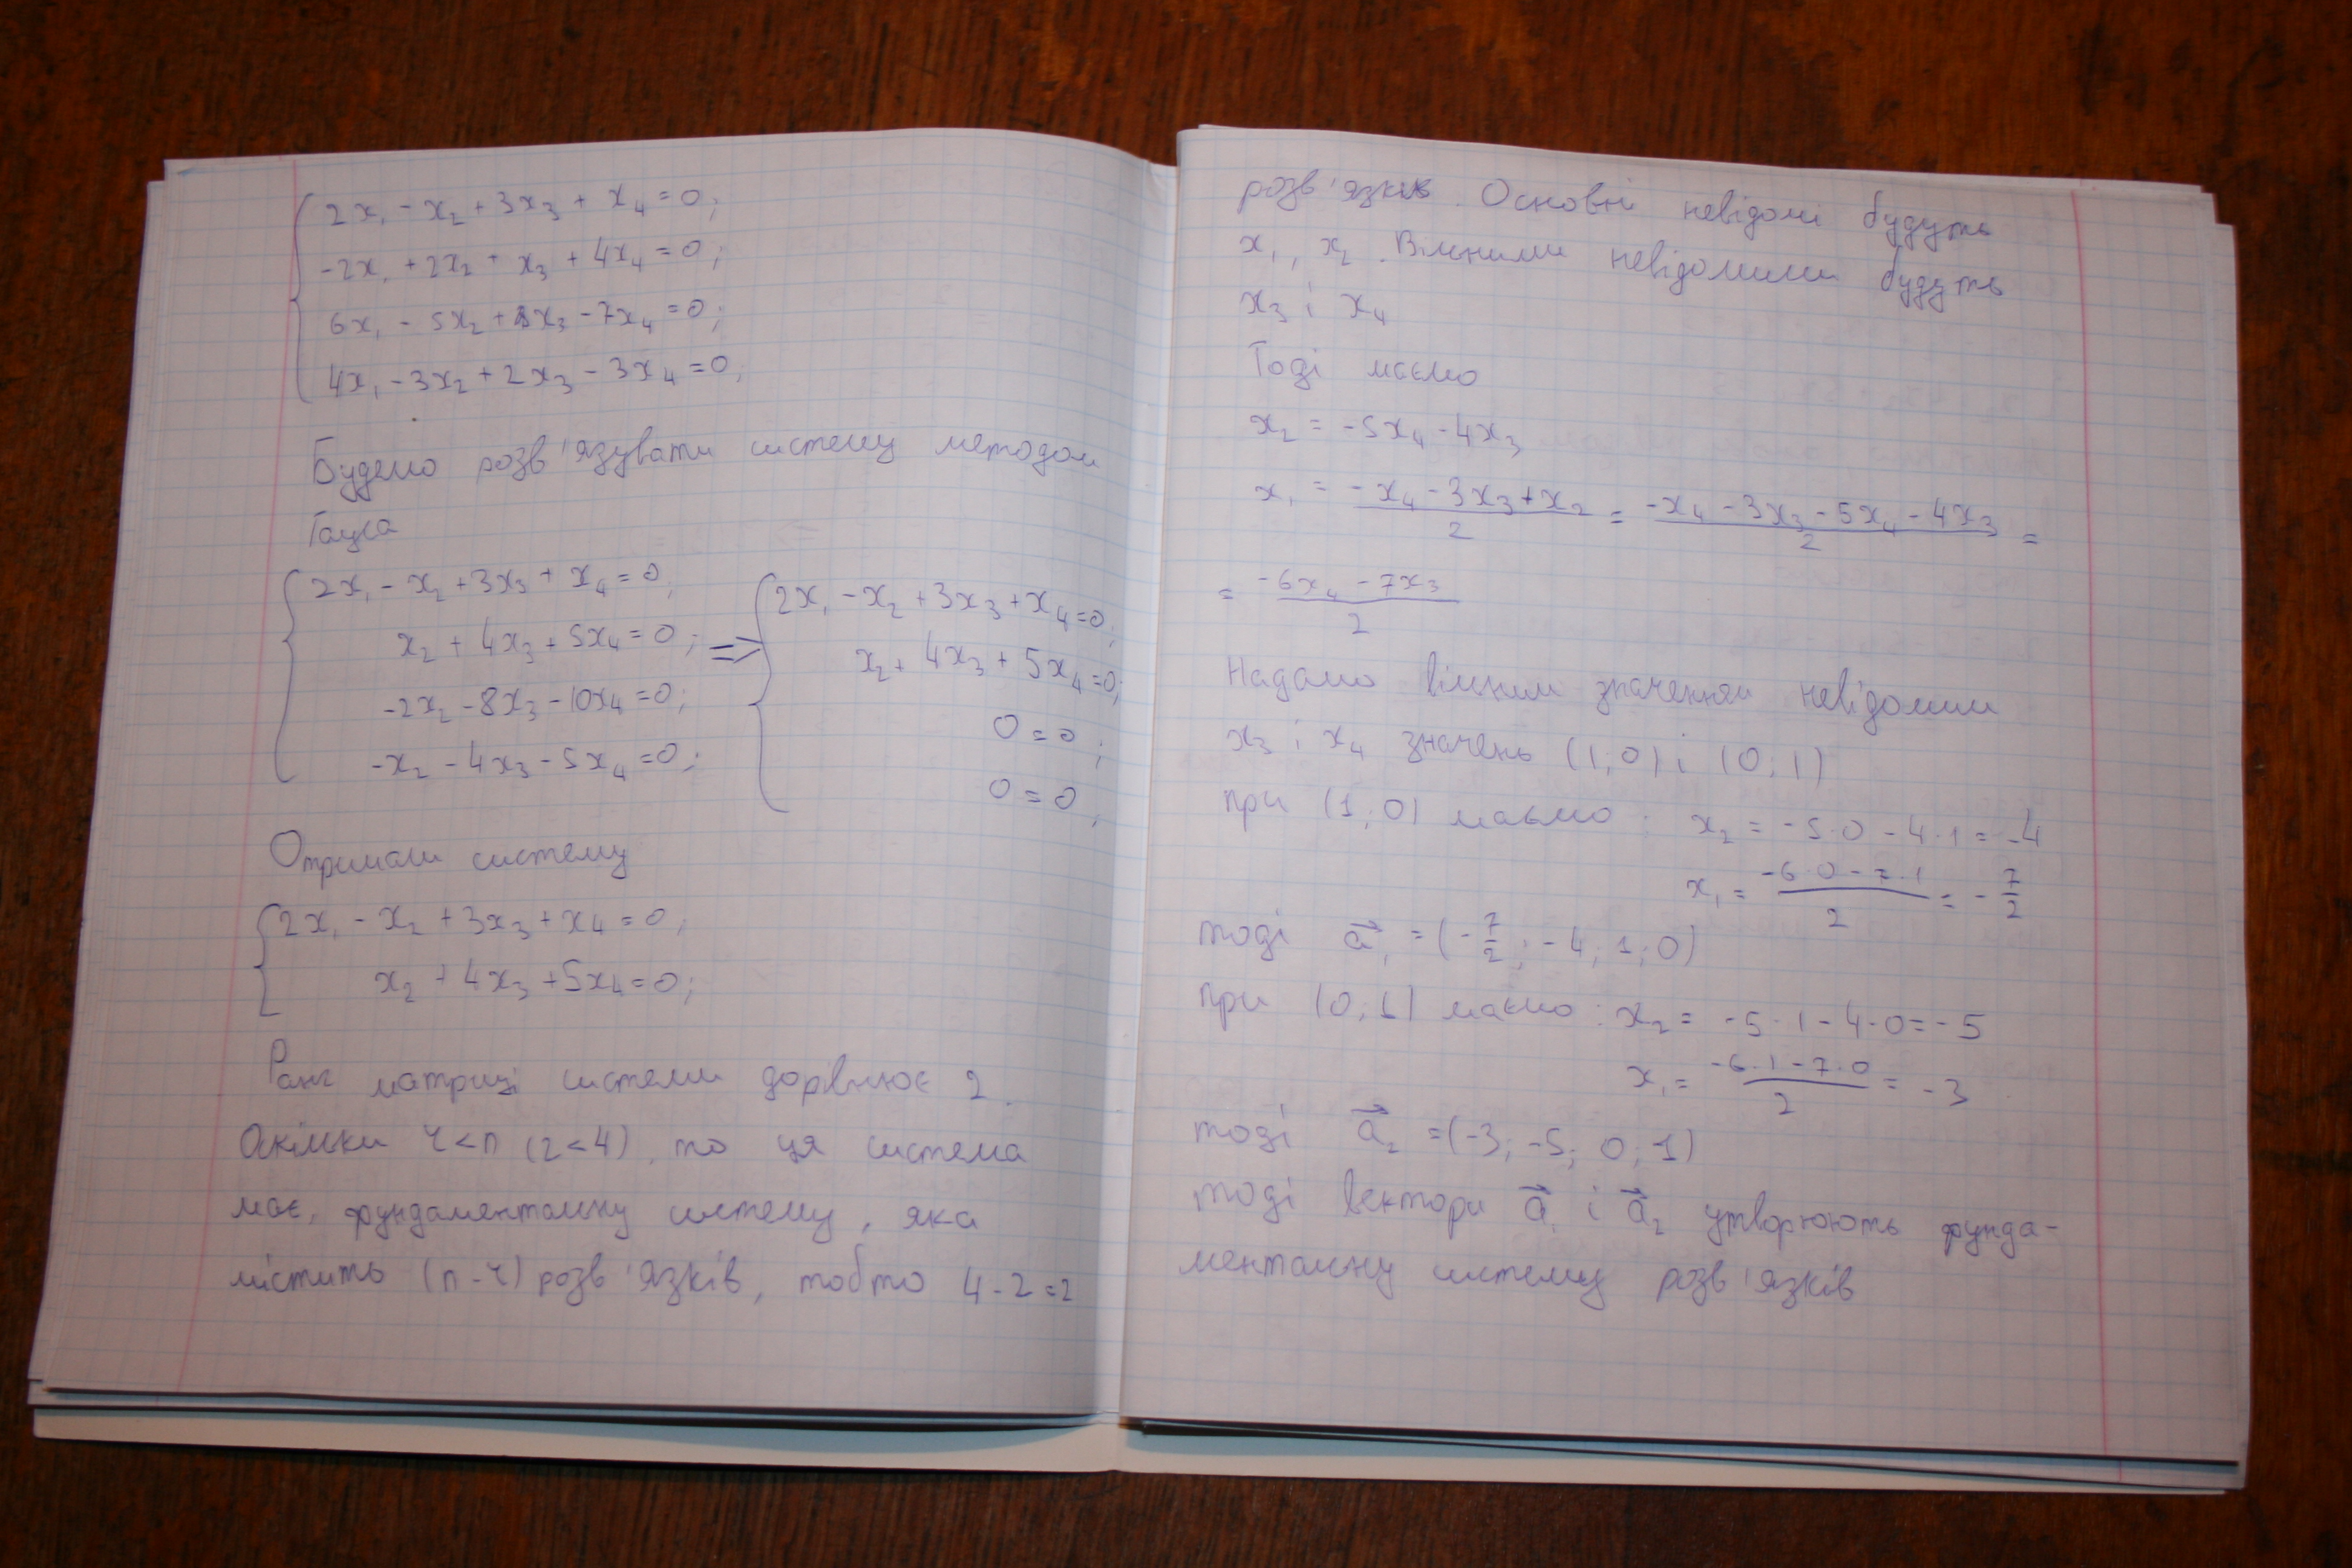 2x₁ - x₂ + 3x₃ + x₄ = 0;
-2x₁ + 2x₂ + x₃ + 4x₄ = 0;
6x₁ - 5x₂ + x₃ - 7x₄ = 0;
4x₁ - 3x₂ + 2x₃ - 3x₄ = 0;
Будемо розв'язувати систему методом
Гауса
2x₁ - x₂ + 3x₃ + x₄ = 0;
x₂ + 4x₃ + 5x₄ = 0;
-2x₂ - 8x₃ - 10x₄ = 0;
-x₂ - 4x₃ - 5x₄ = 0;
=>
2x₁ - x₂ + 3x₃ + x₄ = 0;
x₂ + 4x₃ + 5x₄ = 0;
0 = 0;
0 = 0;
Отримали систему
2x₁ - x₂ + 3x₃ + x₄ = 0;
x₂ + 4x₃ + 5x₄ = 0;
Ранг матриці системи дорівнює 2.
Оскільки r < n (2 < 4), то ця система
має, фундаментальну систему, яка
містить (n - r) розв'язків, тобто 4 - 2 = 2
розв'язків. Основні невідомі будуть
x₁, x₂. Вільними невідомими будуть
x₃ і x₄
Тоді маємо
x₂ = -5x₄ - 4x₃
x₁ = (-x₄ - 3x₃ + x₂)/2 = (-x₄ - 3x₃ - 5x₄ - 4x₃)/2 =
= (-6x₄ - 7x₃)/2
Надамо вільним значенням невідомим
x₃ і x₄ значень (1; 0) і (0; 1)
при (1; 0) маємо: x₂ = -5·0 - 4·1 = -4
x₁ = (-6·0 - 7·1)/2 = -7/2
тоді a⃗₁ = (-7/2; -4; 1; 0)
при (0; 1) маємо: x₂ = -5·1 - 4·0 = -5
x₁ = (-6·1 - 7·0)/2 = -3
тоді a⃗₂ = (-3; -5; 0; 1)
тоді вектори a⃗₁ і a⃗₂ утворюють фунда-
ментальну систему розв'язків